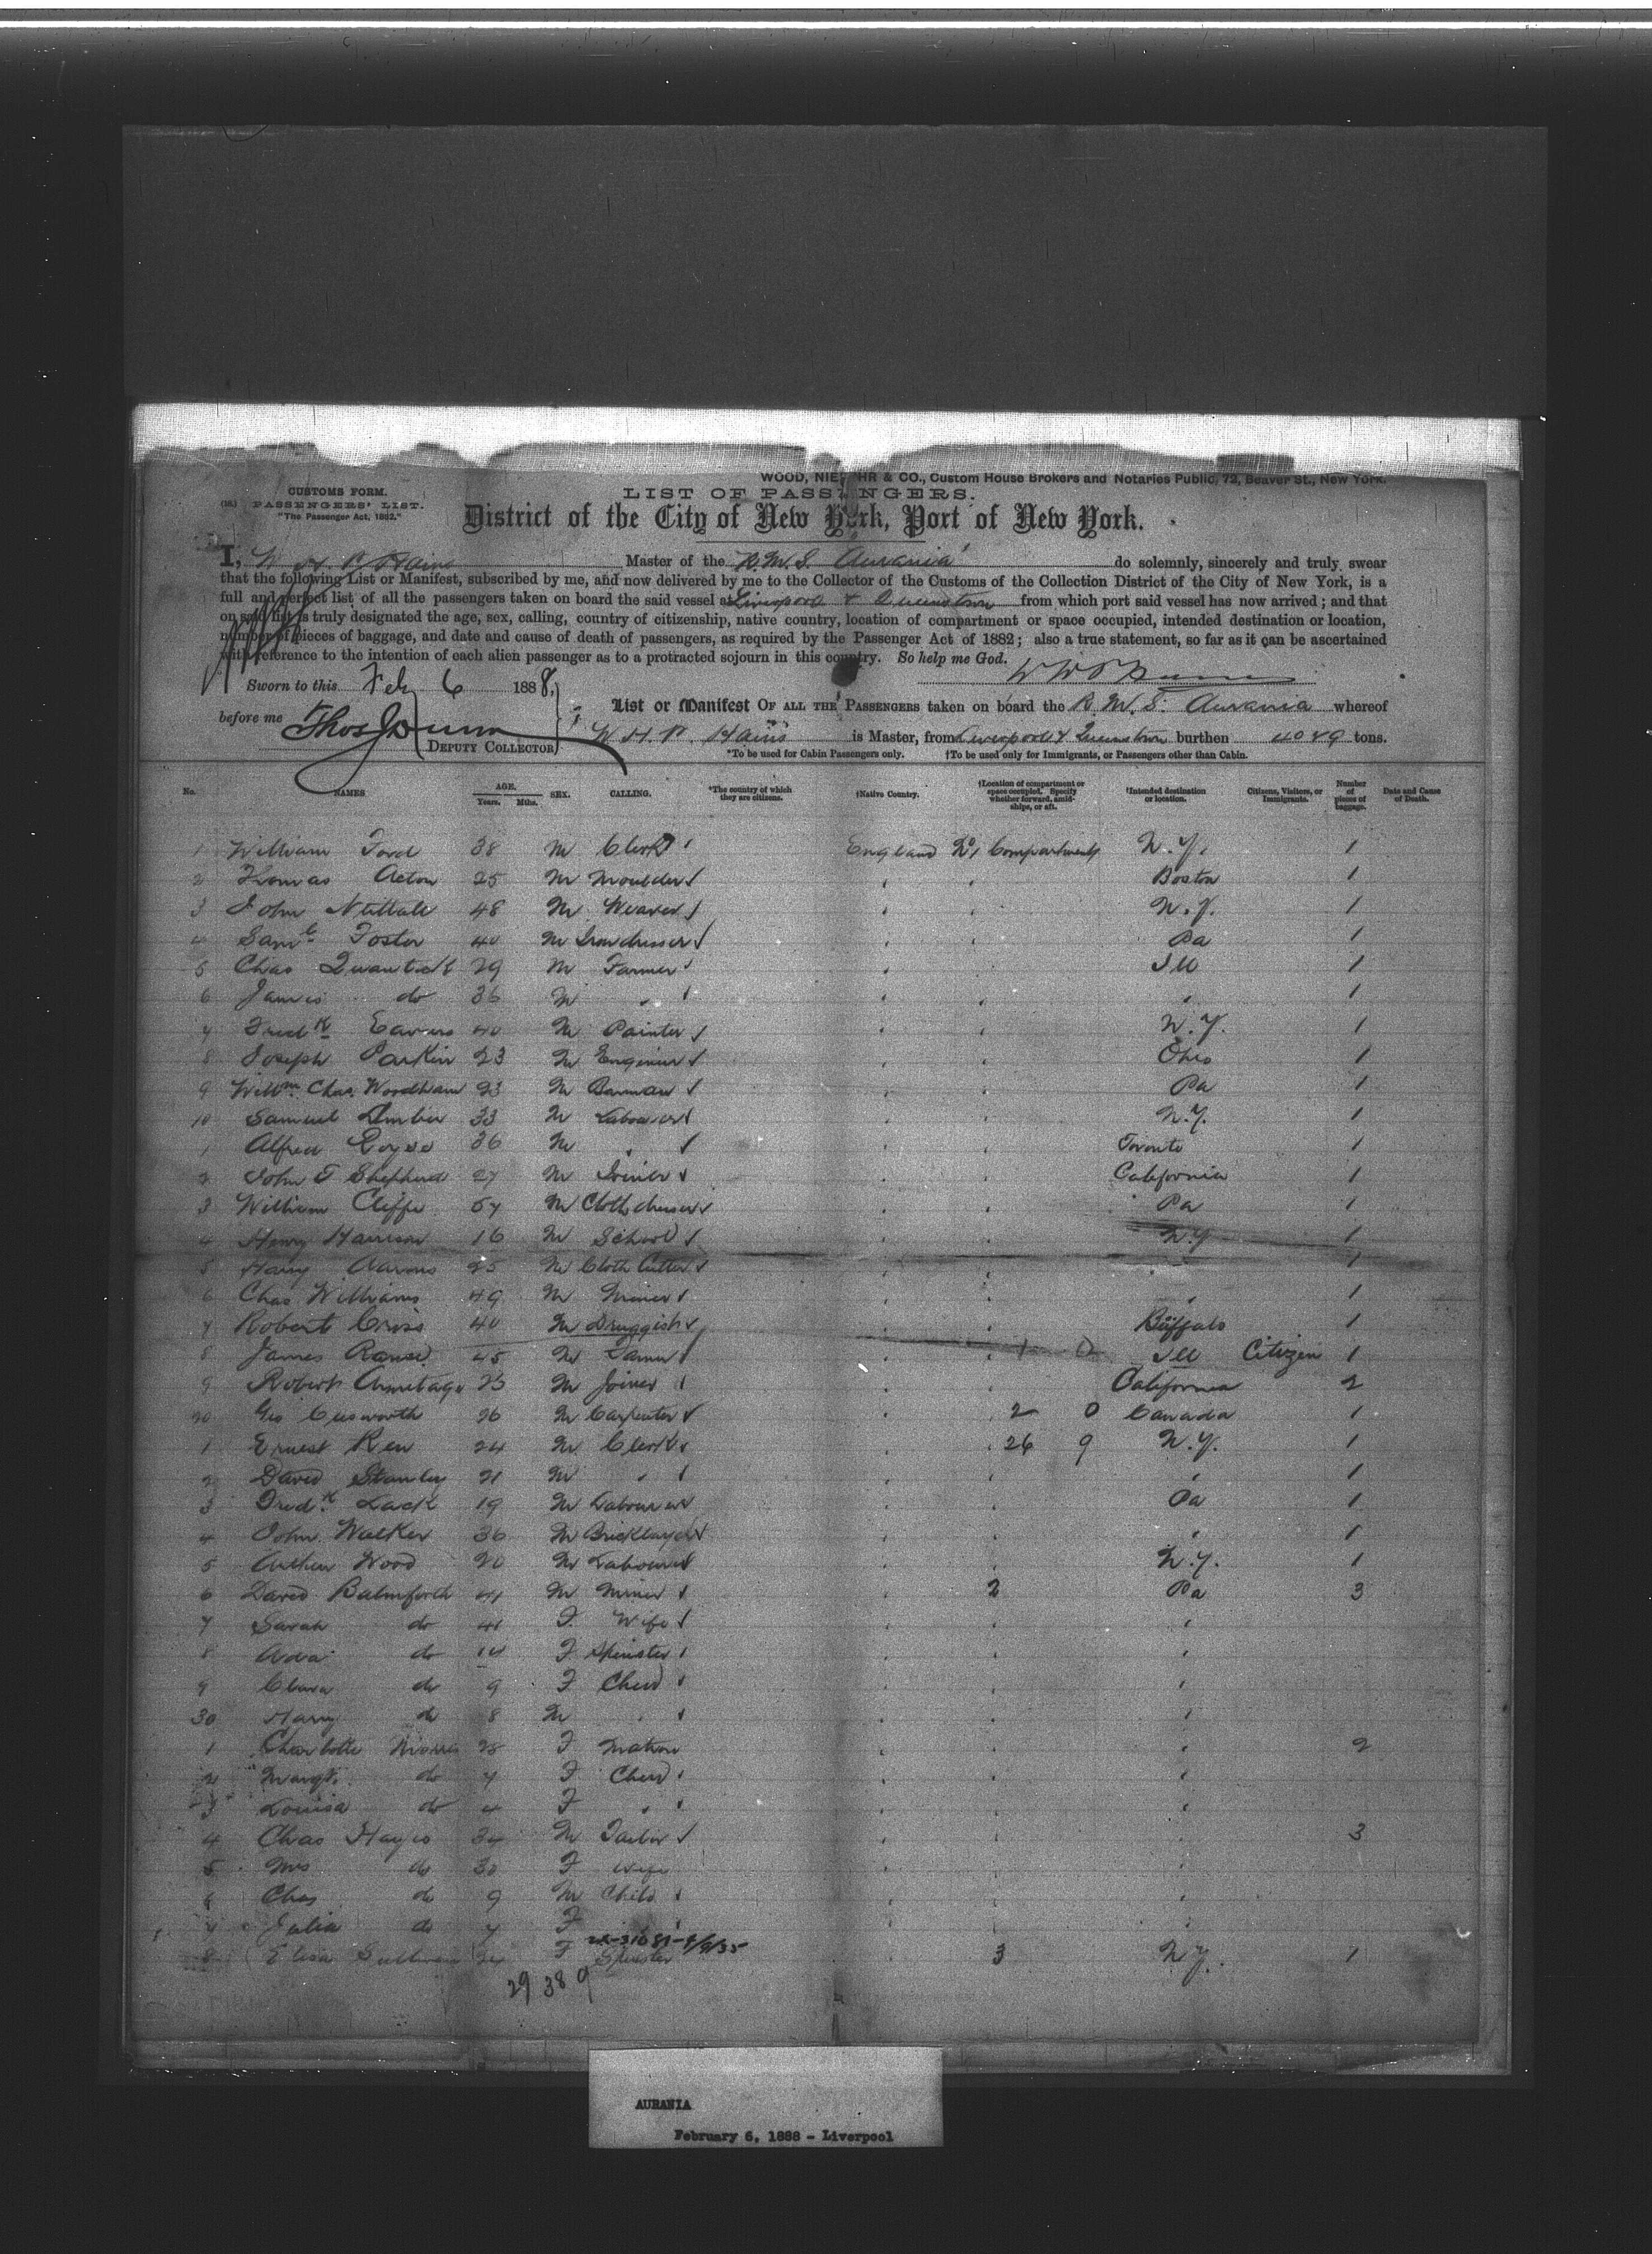 WOOD, NIE HR & CO., Custom House Brokers and Notaries Public, 72, Beaver St., New York.
CUSTOMS FORM.
PASSENGERS' LIST.
"The Passenger Act, 1882."
LIST OF PASSENGERS.
District of the City of New York, Port of New York.
I, W. H. P. Hains Master of the R.M.S. Aurania do solemnly, sincerely and truly swear
that the following List or Manifest, subscribed by me, and now delivered by me to the Collector of the Customs of the Collection District of the City of New York, is a
full and perfect list of all the passengers taken on board the said vessel at Liverpool & Queenstown from which port said vessel has now arrived; and that
on said list is truly designated the age, sex, calling, country of citizenship, native country, location of compartment or space occupied, intended destination or location,
number of pieces of baggage, and date and cause of death of passengers, as required by the Passenger Act of 1882; also a true statement, so far as it can be ascertained
with reference to the intention of each alien passenger as to a protracted sojourn in this country. So help me God.
Sworn to this Feb 6 1888,
before me Thos J Dunn
DEPUTY COLLECTOR
List or Manifest OF ALL THE PASSENGERS taken on board the R.M.S. Aurania whereof
W. H. P. Hains is Master, from Liverpool & Queenstown burthen tons.
*To be used for Cabin Passengers only. †To be used only for Immigrants, or Passengers other than Cabin.
No. NAMES AGE. Years. Mths. SEX. CALLING. *The country of which they are citizens. †Native Country. †Location of compartment or space occupied. Specify whether forward, amidships, or aft. †Intended destination or location. Citizens, Visitors, or Immigrants. Number of pieces of baggage. Date and Cause of Death.
1 William Ford 38 M Clerk England No 1 Compartment N.Y. 1
2 Thomas Acton 25 M Moulder Boston 1
3 John Nuttall 48 M Weaver N.Y. 1
4 Saml Foster 40 M Pa 1
5 Chas 29 M Farmer Ill 1
6 James do 36 M " " 1
7 Fredk 40 M Painter N.Y. 1
8 Joseph Parkin 23 M Engineer Ohio 1
9 Willm Chas. Woodham 23 M Barman Pa 1
10 Samuel 33 M Labourer N.Y. 1
1 Alfred 36 M " Toronto 1
2 John T Shepherd 27 M Joiner California 1
3 William Cliffe 57 M Cloth dresser Pa 1
4 Henry Harrison 16 M School N.Y 1
5 Harry Aarons 25 M Cloth Cutter 1
6 Chas Williams 49 M Miner " 1
7 Robert Criss 40 M Druggist Buffalo 1
8 James 45 M Farmer 1 0 Ill Citizen 1
9 Robert Armitage 23 M Joiner California 2
20 Geo Cusworth 26 M Carpenter 2 0 Canada 1
1 Ernest Ken 24 M Clerk 26 9 N.Y. 1
2 David Stanley 21 M " " 1
3 Fredk Lack 19 M Labourer Pa 1
4 John Walker 36 M Bricklayer " 1
5 Arthur Wood 20 M Labourer N.Y. 1
6 David Balmforth 41 M Miner 2 Pa 3
7 Sarah do 41 F. Wife "
8 Ada do 14 F Spinster "
9 Clara do 9 F Child "
30 Harry do 8 M " "
1 Charlotte Morris 28 F Matron " 2
2 Margt. do 7 F Child "
3 Louisa do 4 F " "
4 Chas Hayes 34 M Tailor 3
5 Mrs do 30 F Wife
6 Chas do 9 M Child "
7 Julia do 7 F "
8 Eliza Sullivan F Spinster 3 N.Y. 1
29 38 9
AURANIA
February 6, 1888 - Liverpool